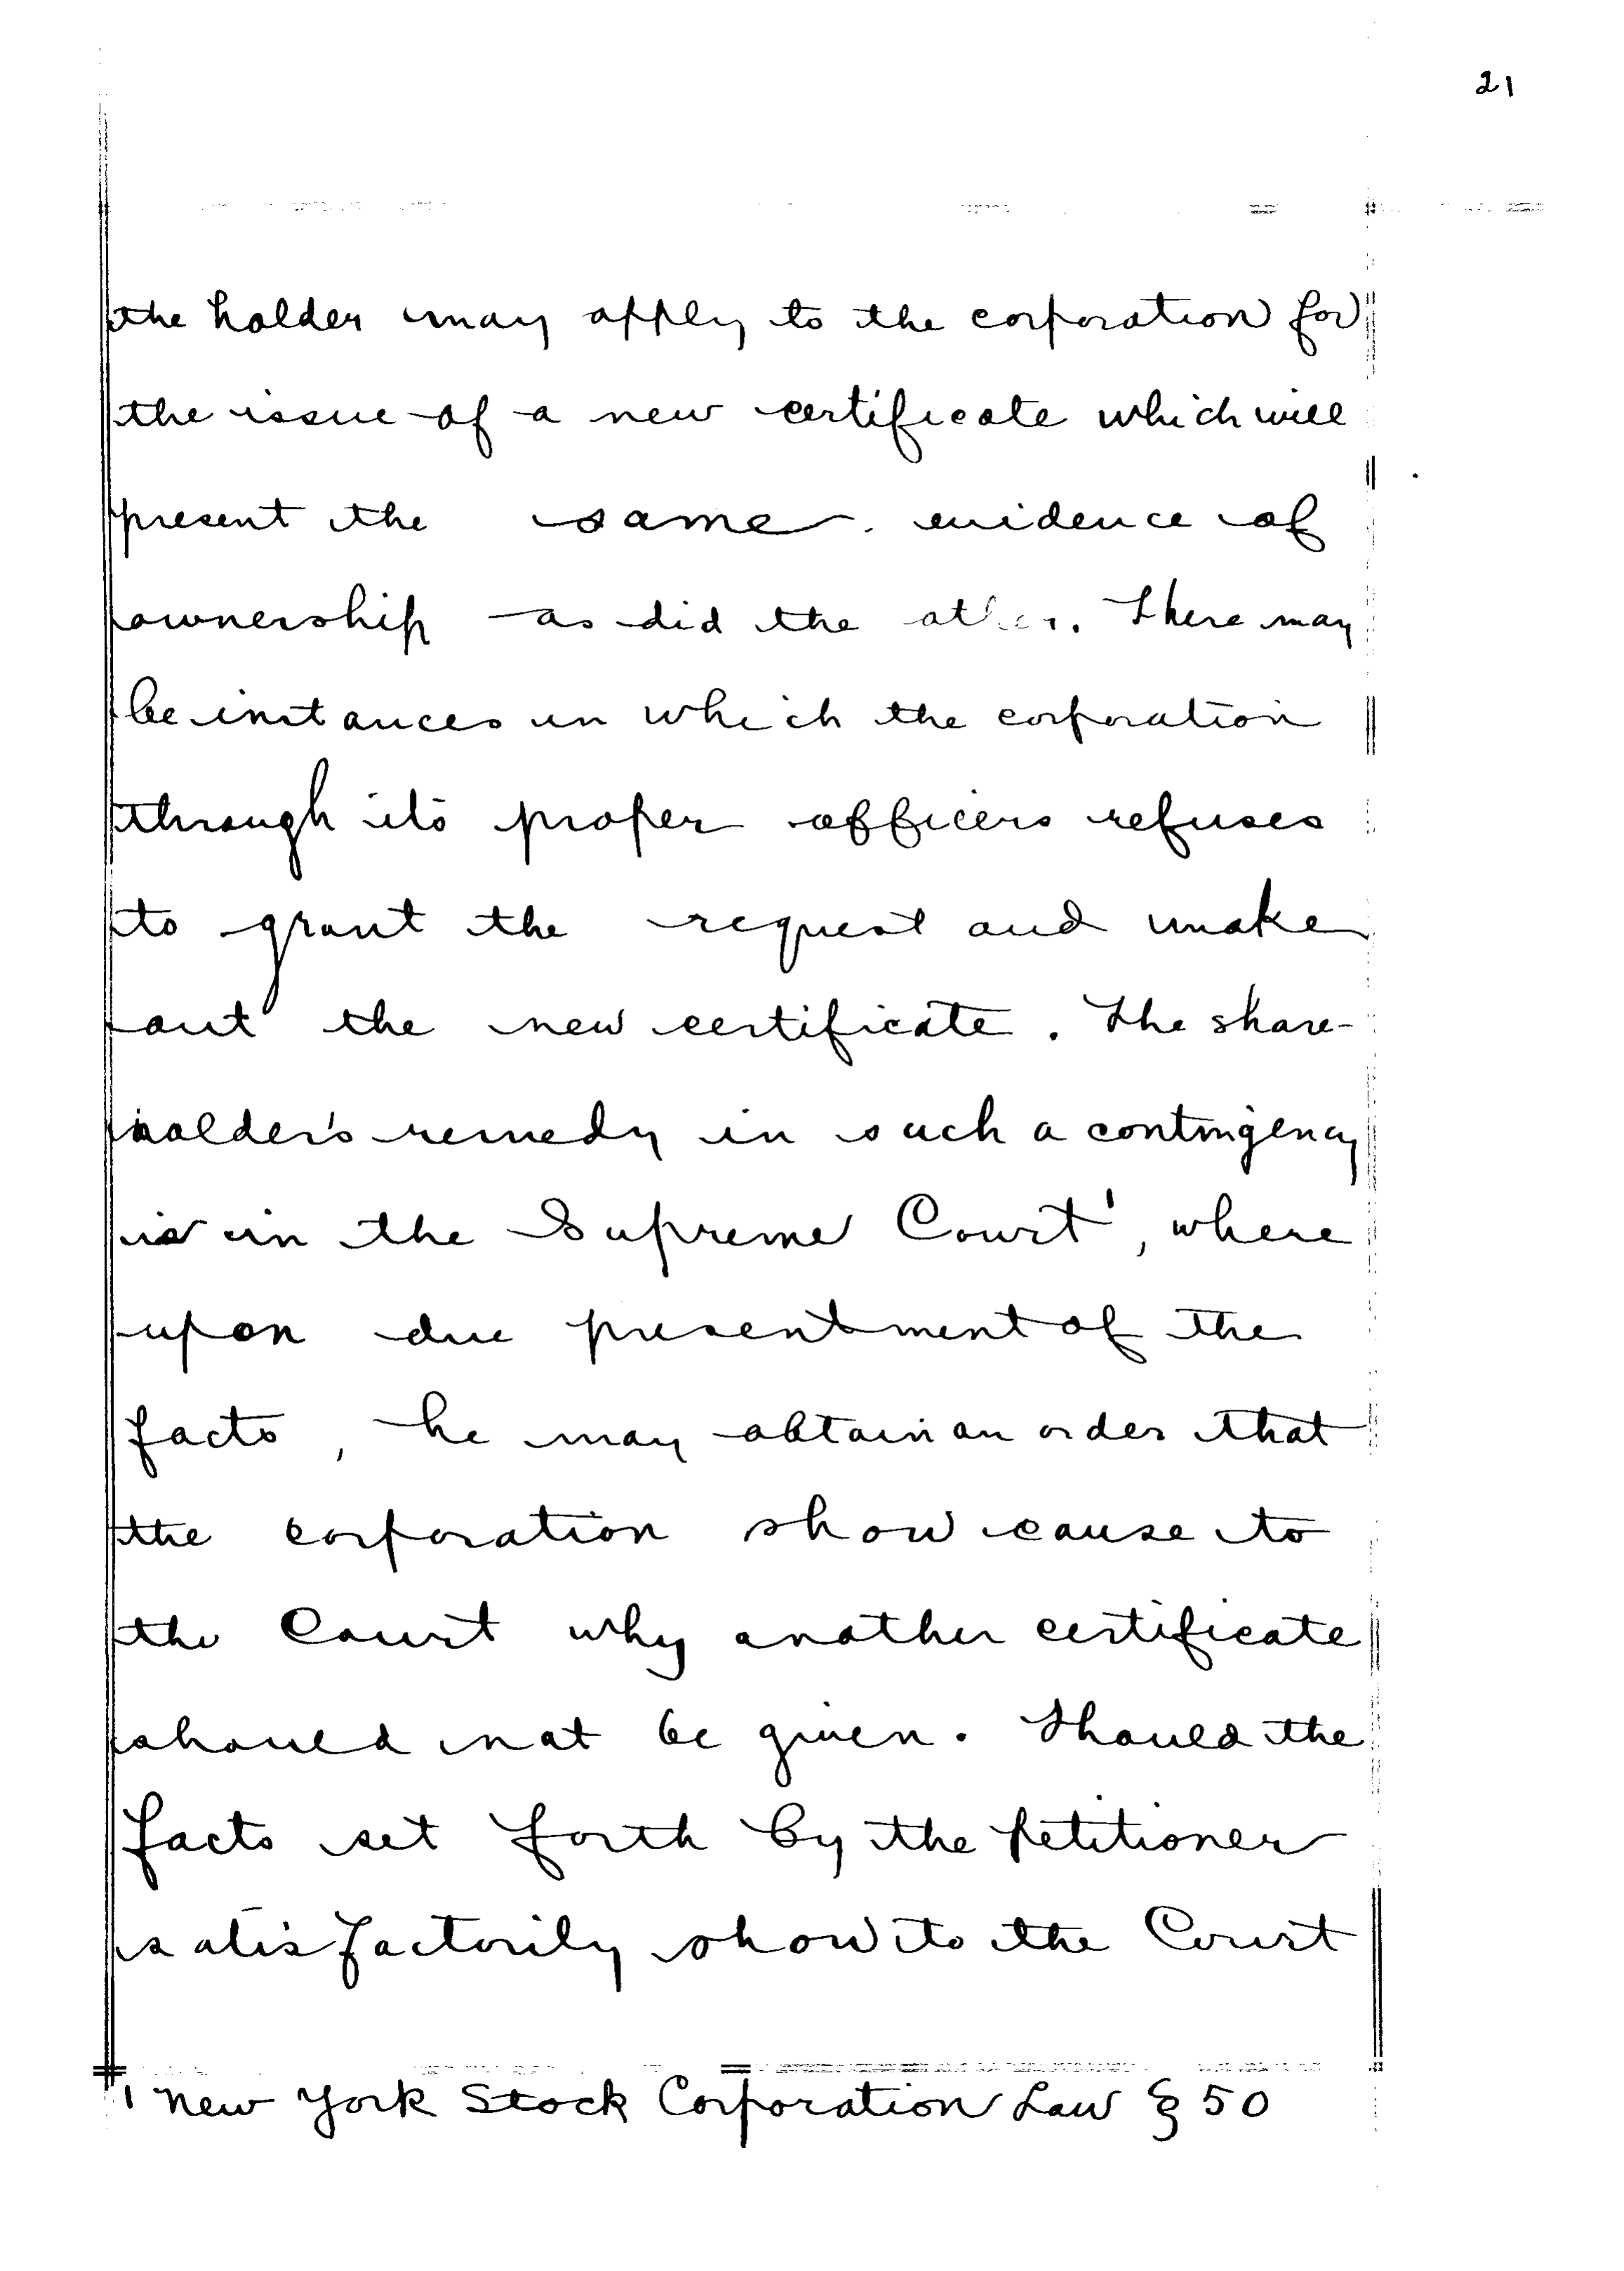 21
the holder may apply to the corporation for
the issue of a new certificate which will
present the same evidence of
ownership as did the other. There may
be instances in which the corporation
through its proper officers refuses
to grant the request and make
out the new certificate. The share-
holder's remedy in such a contingency
is in the Supreme Court¹, where
upon due presentment of the
facts, he may obtain an order that
the corporation show cause to
the Court why another certificate
should not be given. Should the
facts set forth by the petitioner
satisfactorily show to the Court
¹ New York Stock Corporation Law § 50